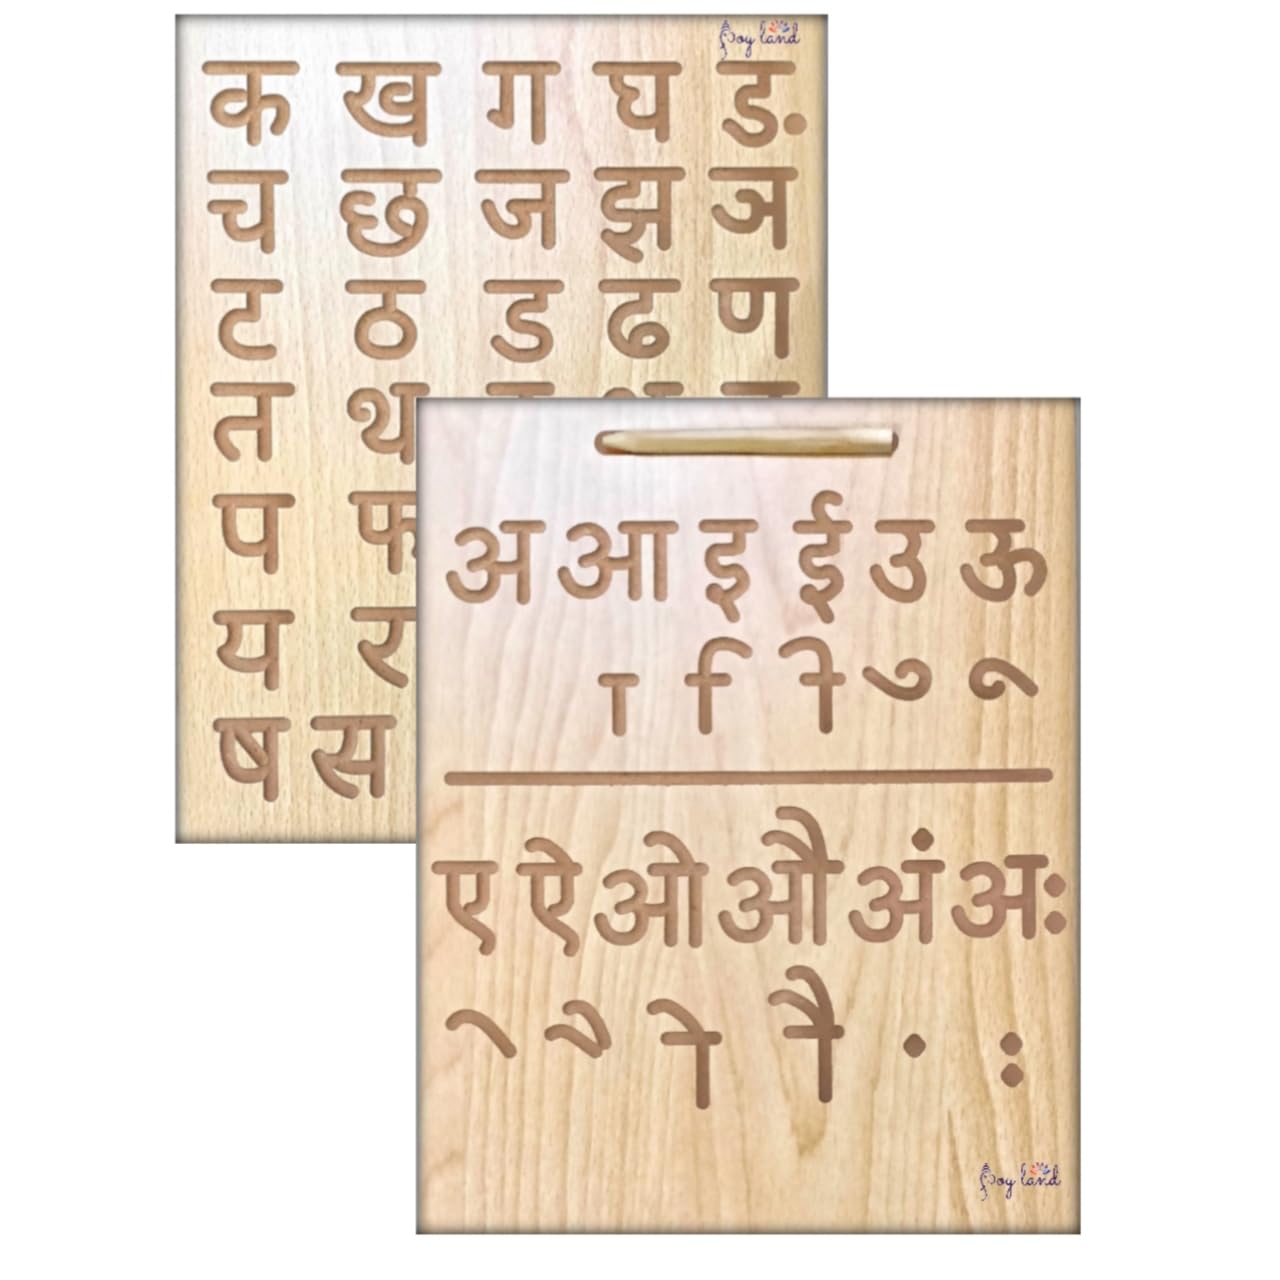 Joy land
क ख ग घ ड.
च छ ज झ ञ
ट ठ ड ढ ण
त थ
प फ
य र
ष स
अ आ इ ई उ ऊ
ा ि ी ु ू
ए ऐ ओ औ अं अः
े ै ो ौ ं ः
Joy land